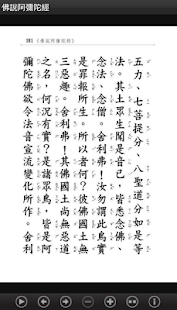 佛說阿彌陀經
《佛說阿彌陀經》
五力、七菩提分、八聖道分如是等
法。其土眾生聞是音已,皆悉念佛、
念法、念僧。舍利弗!汝勿謂此鳥實
是罪報所生。所以者何?彼佛國土無
三惡趣。舍利弗!其佛國土尚無惡道
之名,何況有實?是諸眾鳥,皆是阿
彌陀佛欲令法音宣流變化所作。舍利